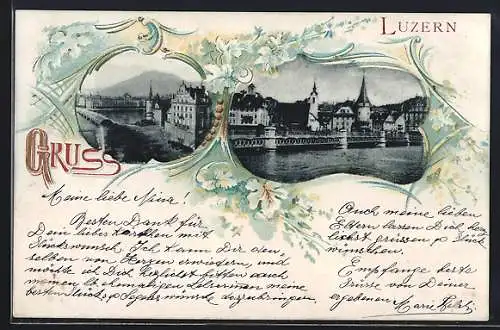 LUZERN
GRUSS
Meine liebe Nina!
Besten Dank für
Dein liebes Kärtchen mit
Glückwunsch. Ich kann Dir den
selben von Herzen erwiedern, und
möchte ich Dich herzlichst bitten auch
meinen lb. ehemaligen Lehrerinnen meine
besten Glücks- & Segenswünsche darzubringen.
Auch meine lieben
Eltern lassen Dich herz
lichst grüssen & Glück
wünschen.
Empfange beste
Grüsse von Deiner
ergebenen
Marie